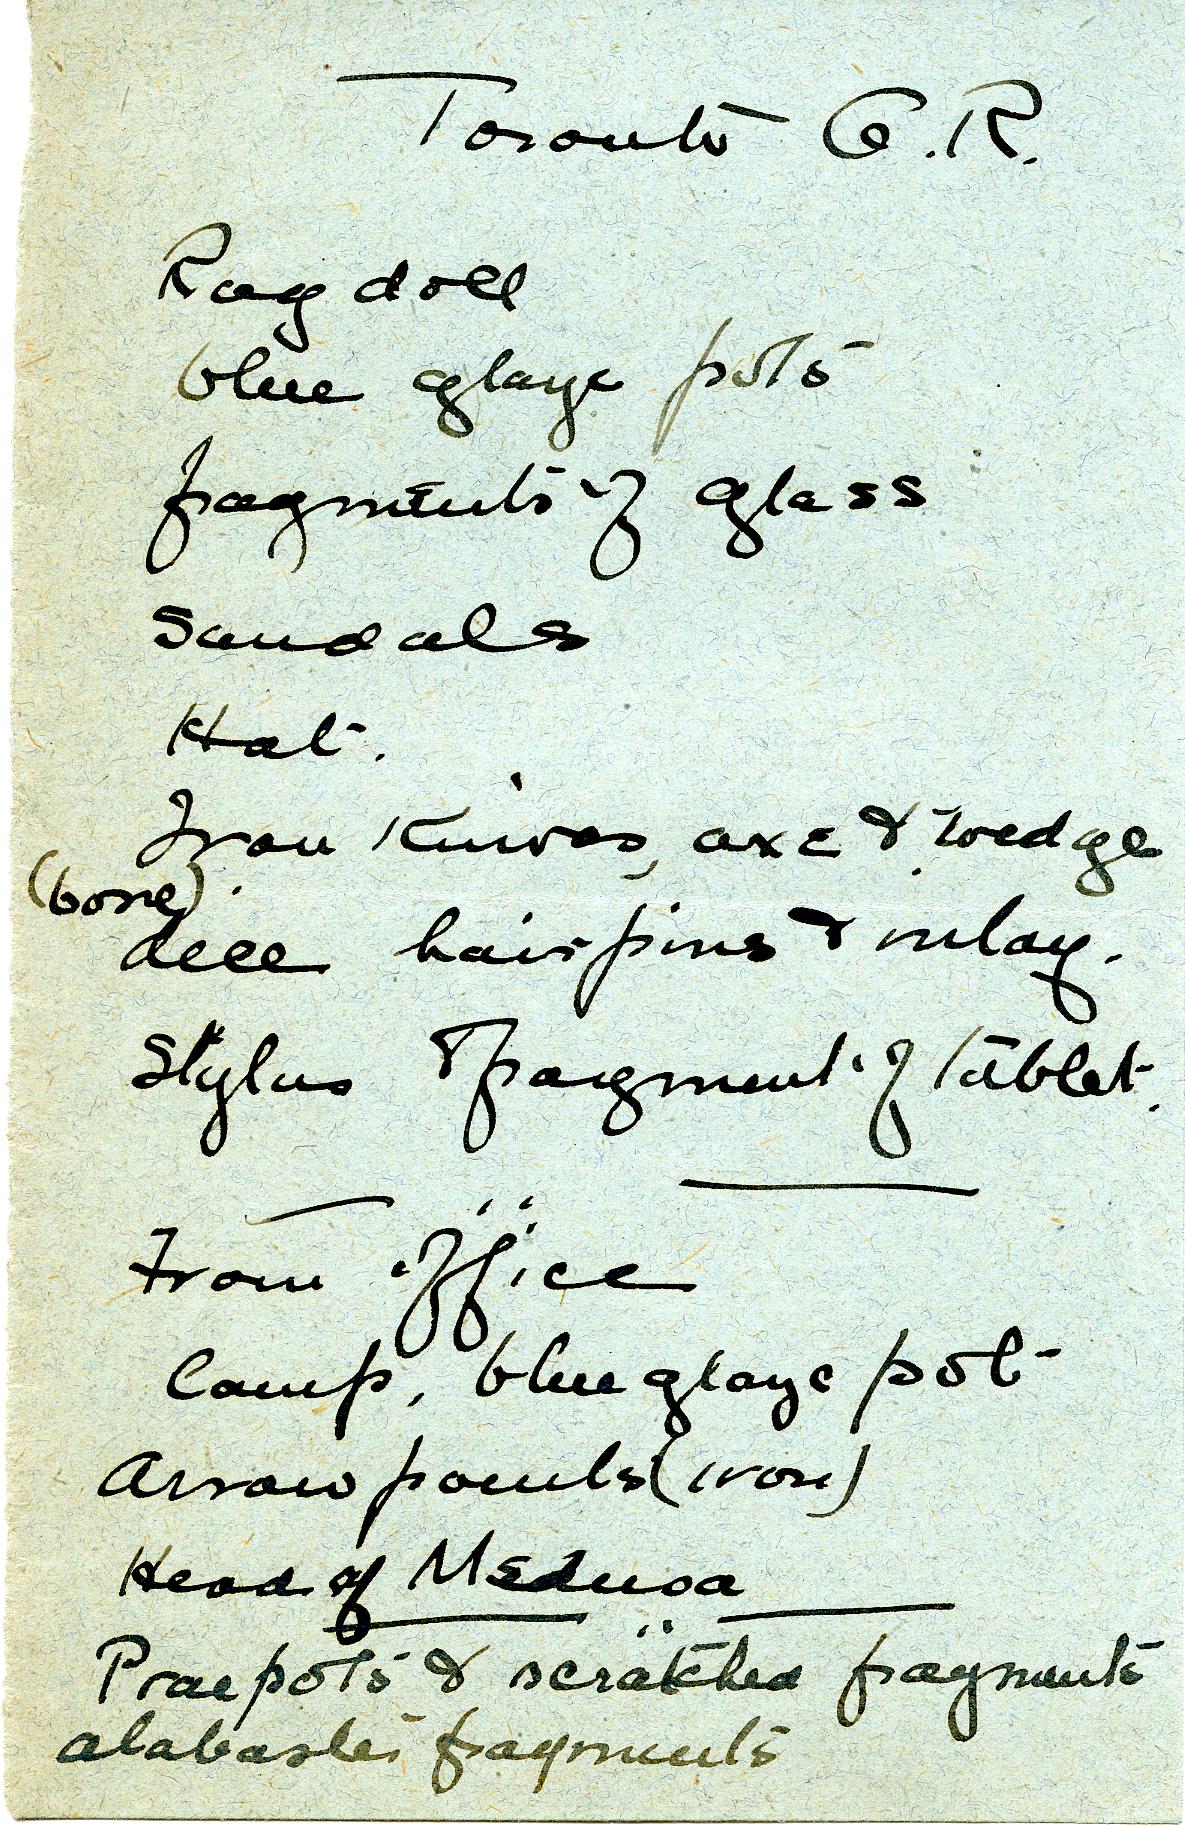 Toronto G.R.
Rag doll
blue glaze pots
fragments of glass
Sandals
Hat.
Iron Knives, axe & wedge
(bone)
dice hairpins & inlay.
Stylus & fragment of tablet.
From office
Lamp, blue glaze pot
Arrow points (iron)
Head of Medusa
Prae pots & scratched fragments
alabaster fragments